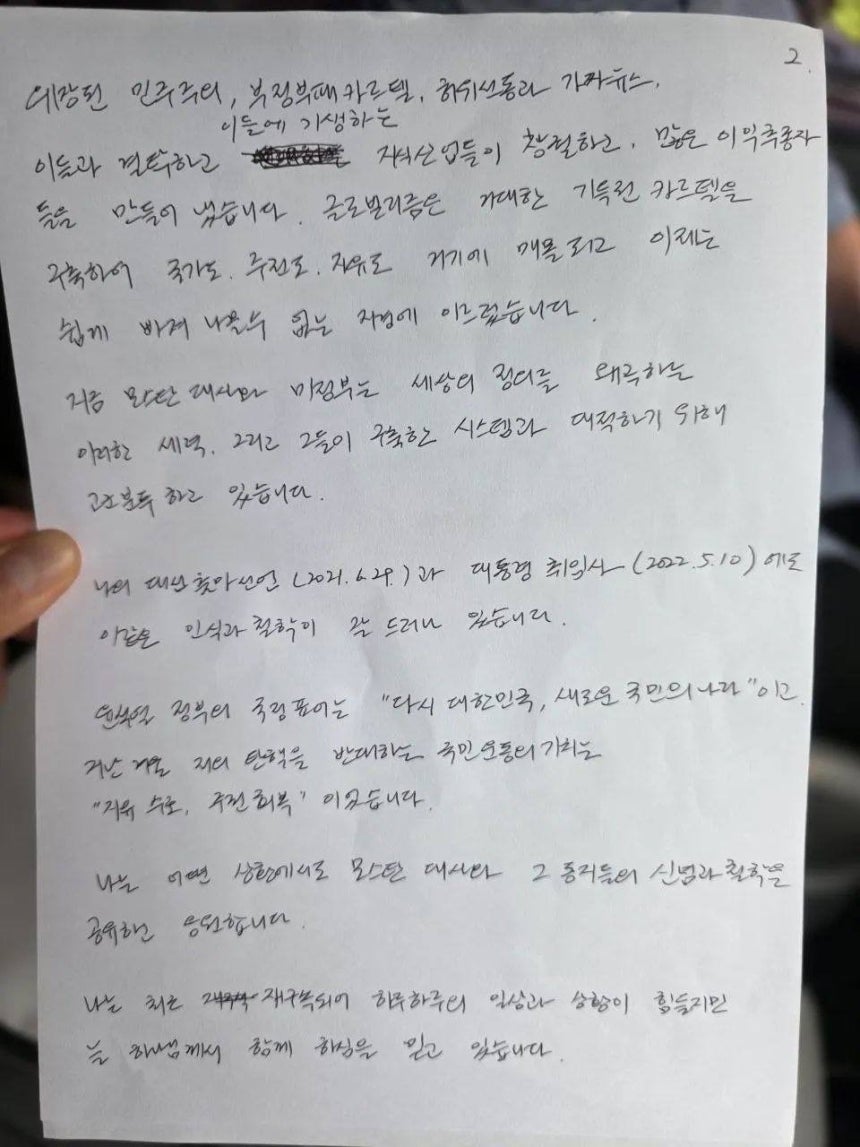 2.
위장된 민주주의, 부정부패 카르텔, 허위선동과 가짜뉴스,
이들에 기생하는
이들과 결탁하고 지식산업들이 창궐하고, 많은 이익추종자
들을 만들어 냈습니다. 글로벌리즘은 거대한 기득권 카르텔을
구축하여 국가도, 주권도, 자유도 거기에 매몰되고 이제는
쉽게 빠져 나올수 없는 지경에 이르렀습니다.
지금 모스탄 대사와 미정부는 세상의 정의를 왜곡하는
이러한 세력, 그리고 그들이 구축한 시스템과 대적하기 위해
고군분투 하고 있습니다.
나의 대선 출마선언 (2021.6.29.)과 대통령 취임사 (2022.5.10)에도
이같은 인식과 철학이 잘 드러나 있습니다.
윤석열 정부의 국정 표어는 "다시 대한민국, 새로운 국민의 나라"이고
지난 겨울 저의 탄핵을 반대하는 국민 운동의 기치는
"자유 수호, 주권 회복" 이었습니다.
나는 어떤 상황에서도 모스탄 대사와 그 동지들의 신념과 철학을
공유하고 응원합니다.
나는 최근 재구속되어 하루하루의 일상과 상황이 힘들지만
늘 하나님께서 함께 하심을 믿고 있습니다.